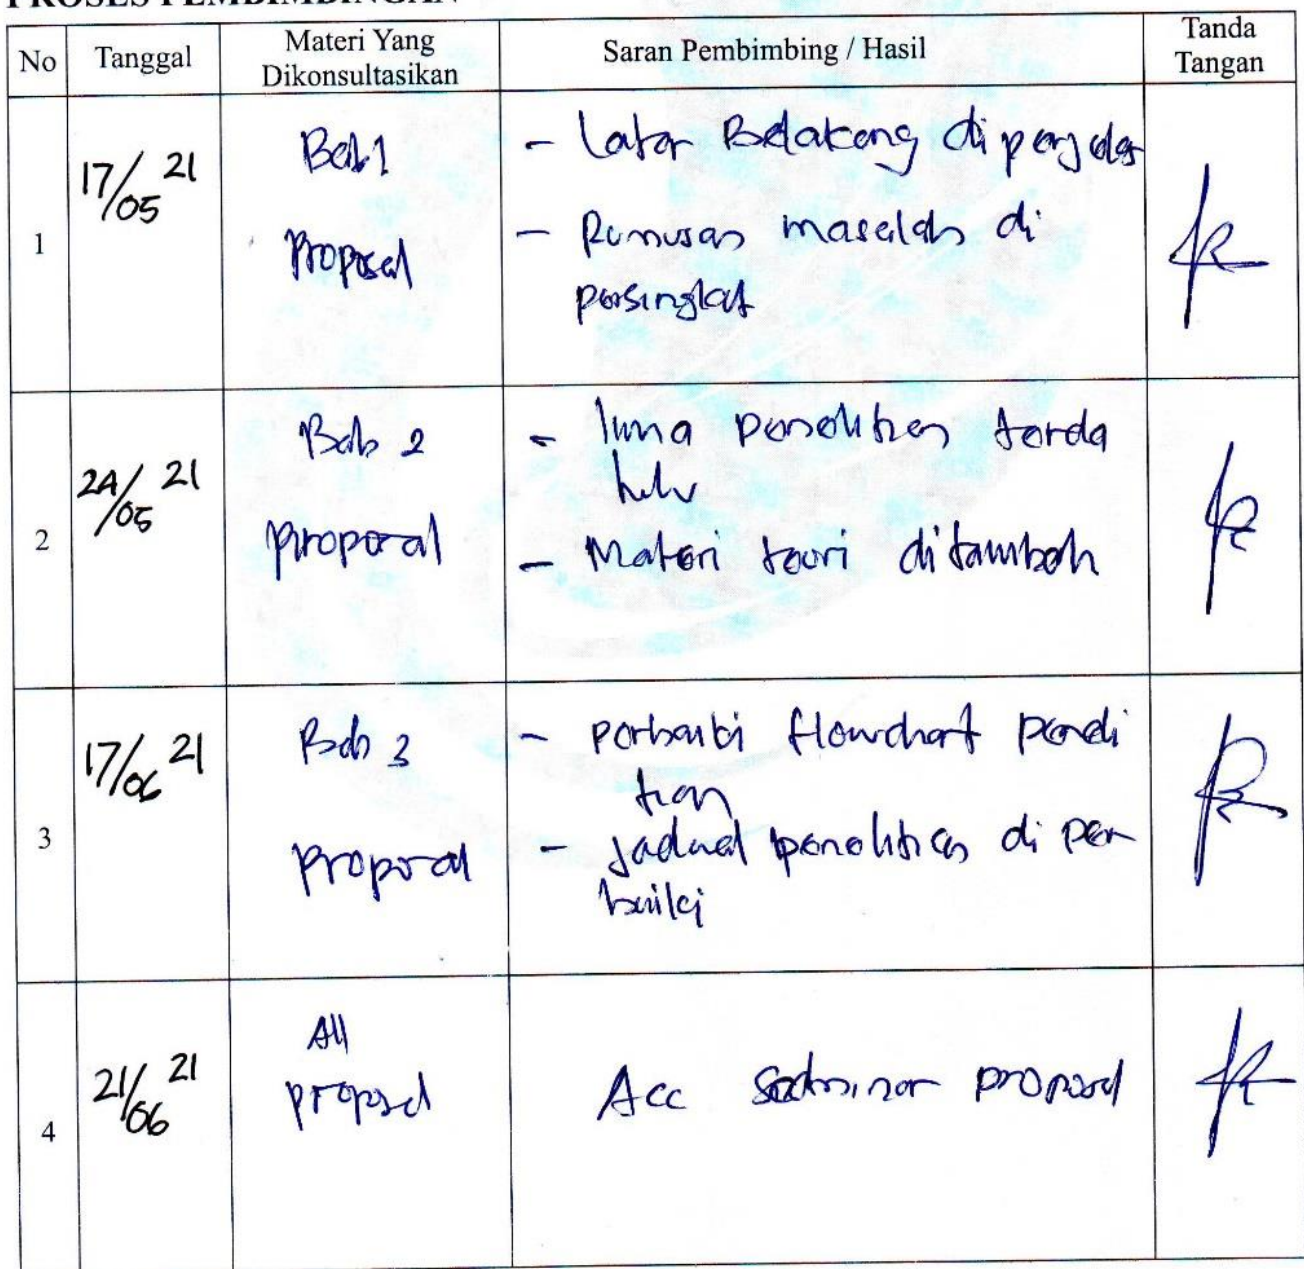 PROSES PEMBIMBINGAN
No Tanggal Materi Yang Dikonsultasikan Saran Pembimbing / Hasil Tanda Tangan
1
17/05 21
Bab 1
Proposal
- Latar Belakang diperjelas
- Rumusan masalah di
persingkat
2
24/05 21
Bab 2
Proposal
- lima penelitian terda
hulu
- Materi teori ditambah
3
17/06 21
Bab 3
Proposal
- perbaiki flowchart peneli
tian
- jadwal penelitian di per
baiki
4
21/06 21
All
proposal
Acc seminar proposal